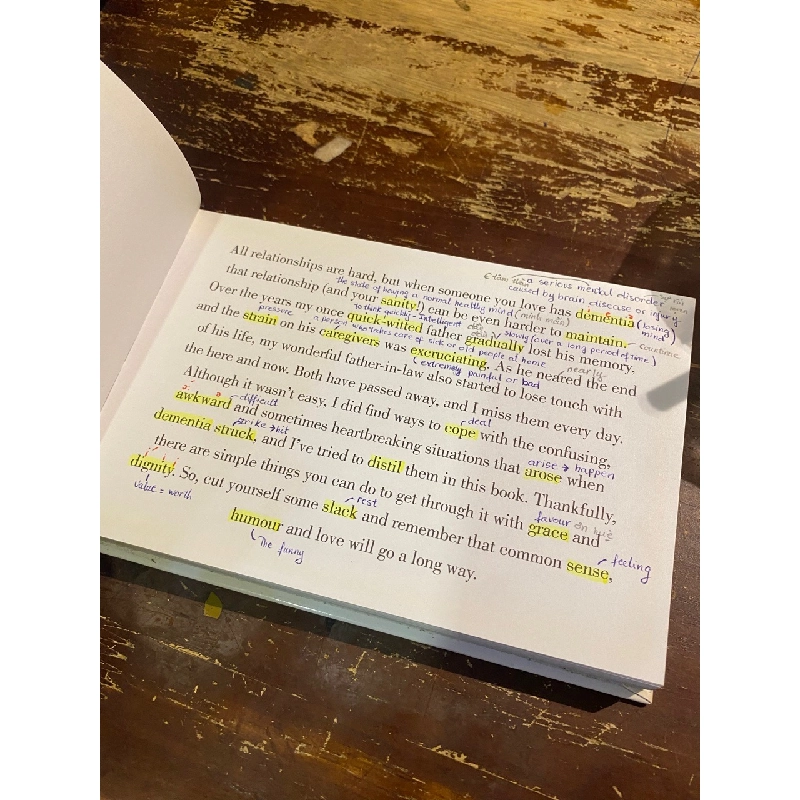 All relationships are hard, but when someone you love has dementia
a serious mental disorder
caused by brain disease or injury
(losing mind)
the state of having a normal healthy mind (minh mẫn)
that relationship (and your sanity!) can be even harder to maintain.
continue
to think quickly - Intelligent
slowly (over a long period of time)
Over the years my once quick-witted father gradually lost his memory.
pressure
a person who takes care of sick or old people at home
nearly
and the strain on his caregivers was excruciating. As he neared the end
extremely painful or bad
of his life, my wonderful father-in-law also started to lose touch with
the here and now. Both have passed away, and I miss them every day.
Although it wasn't easy, I did find ways to cope with the confusing,
difficult
deal
awkward and sometimes heartbreaking situations that arose when
strike → hit
arise → happen
dementia struck, and I've tried to distil them in this book. Thankfully,
there are simple things you can do to get through it with grace and
favour
dignity. So, cut yourself some slack and remember that common sense,
value = worth
rest
feeling
humour and love will go a long way.
the funny